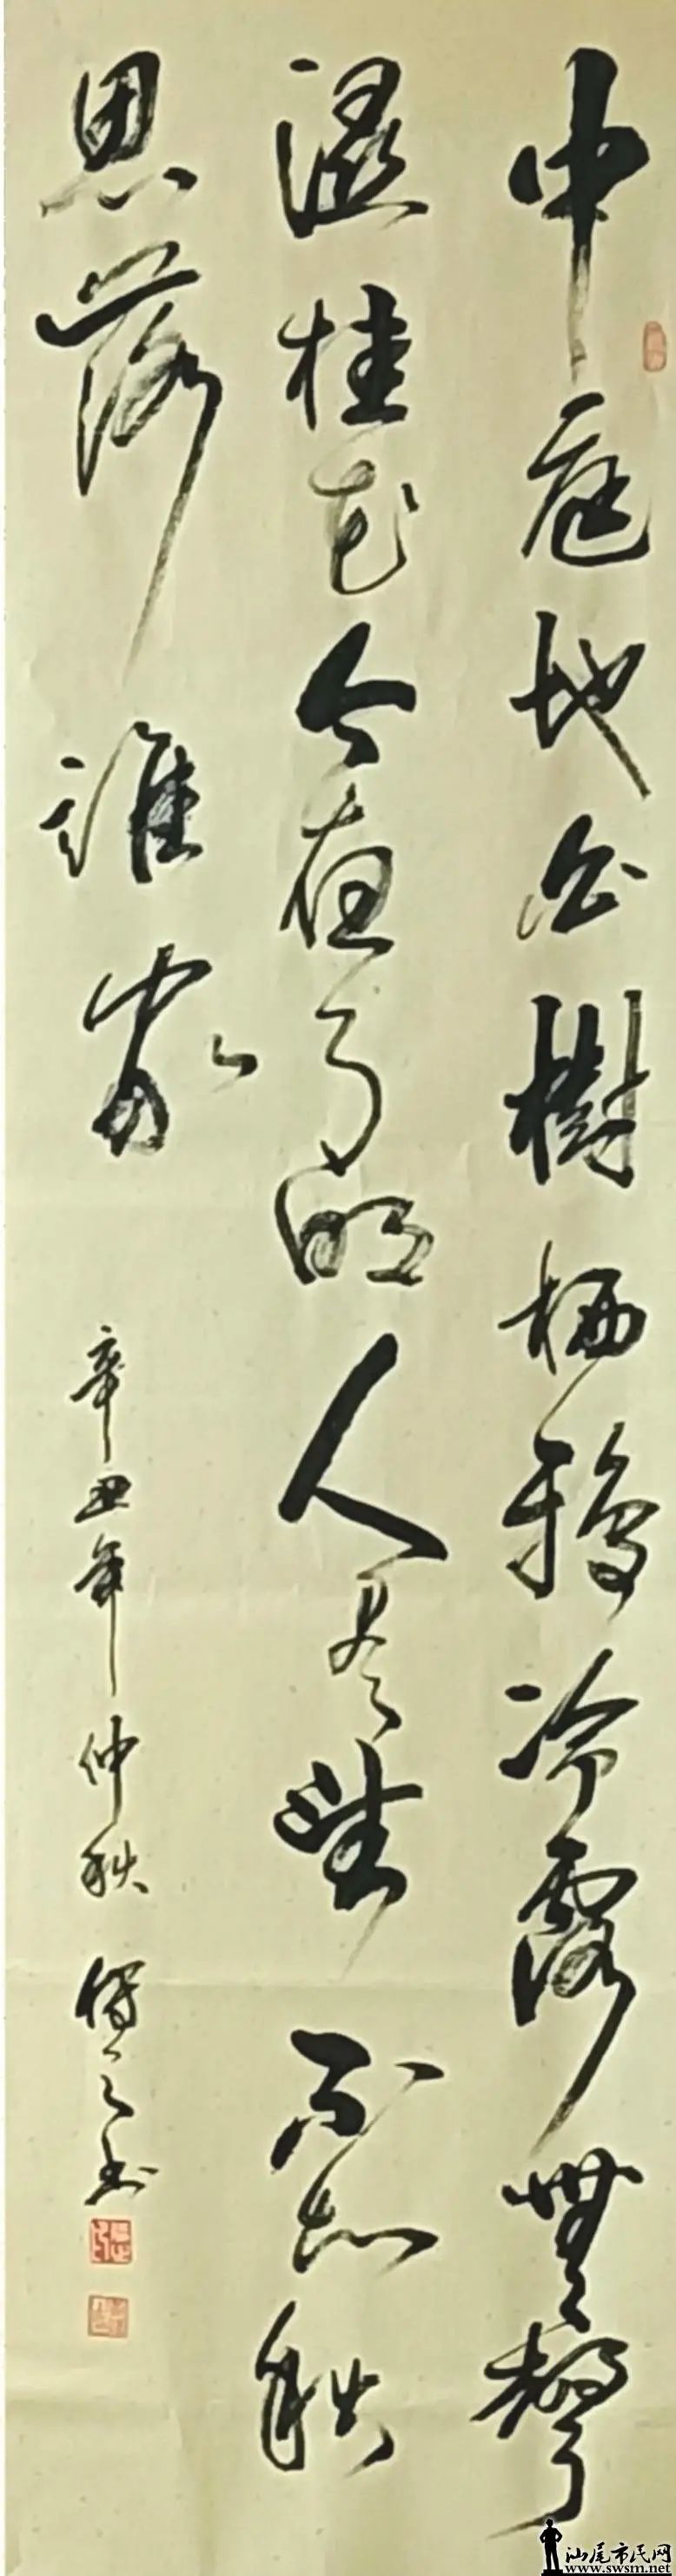 中庭地白樹栖鴉冷露無聲
濕桂花今夜月明人尽望不知秋
思落誰家
辛丑年仲秋 得之书
汕尾市民网
www.swsm.net